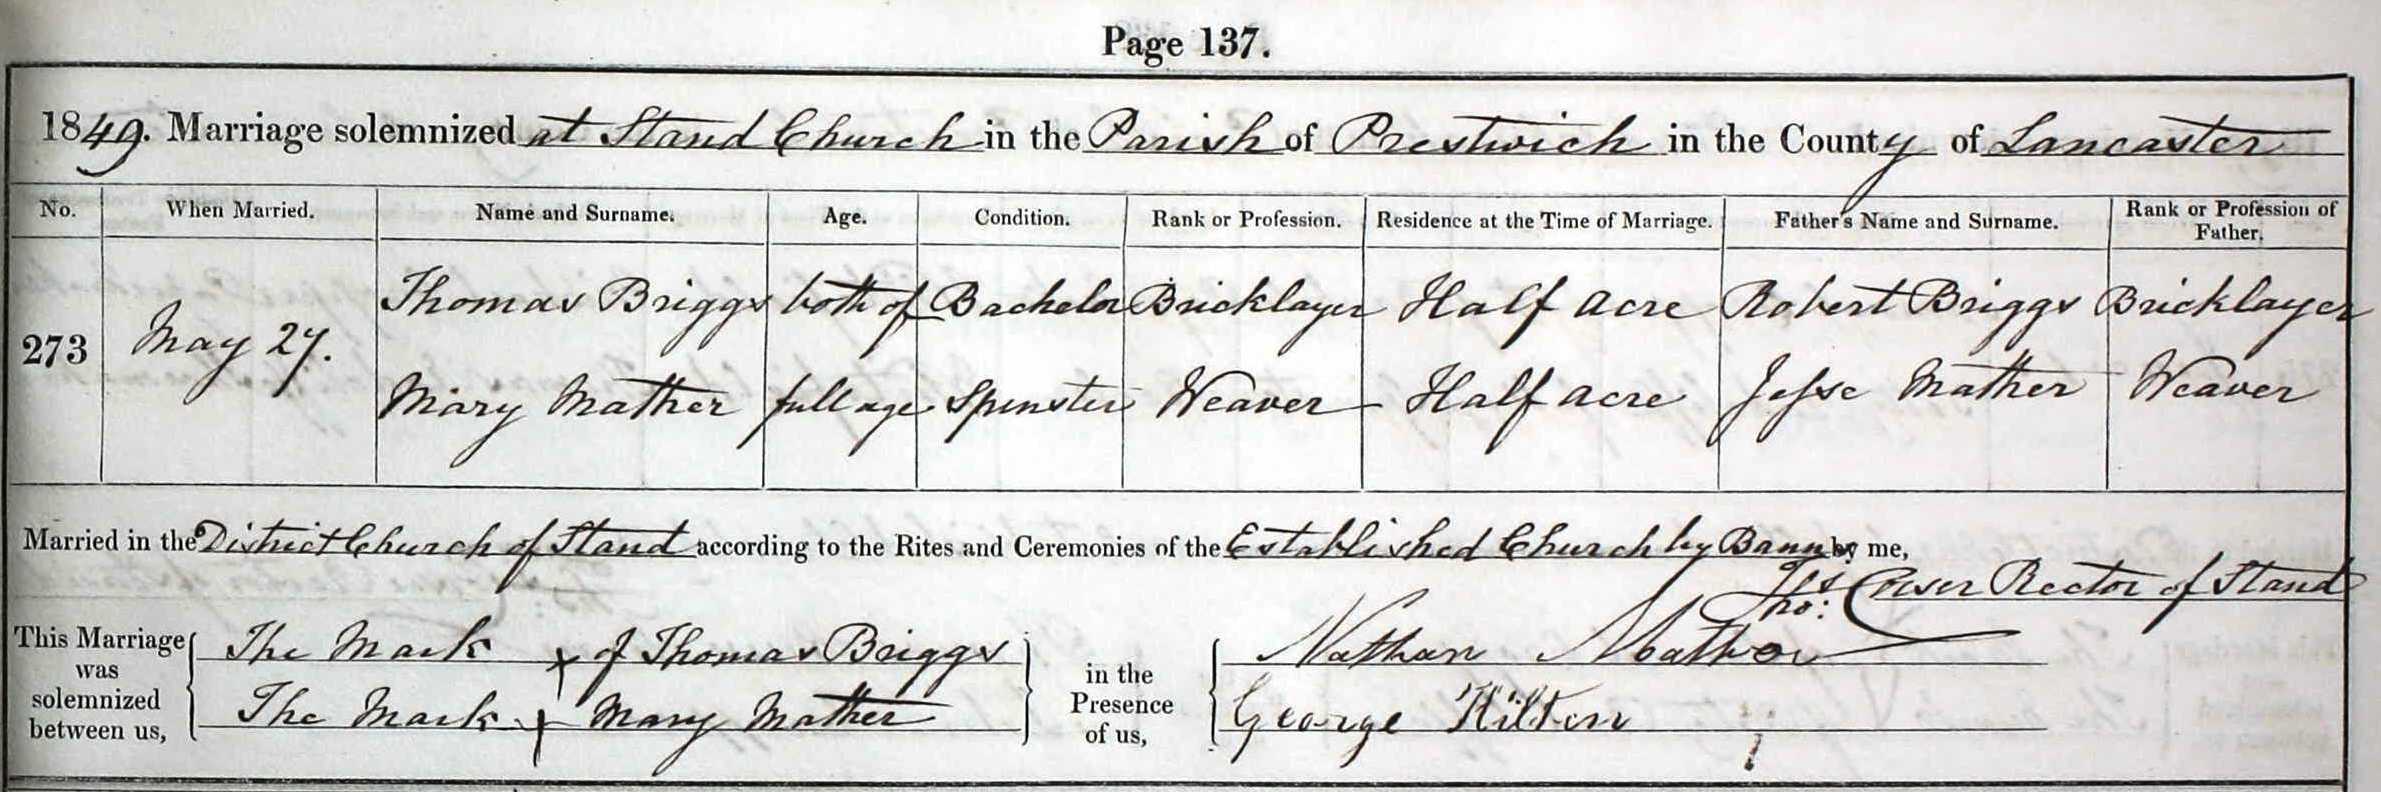 Page 137.
1849. Marriage solemnized at Stand Church in the Parish of Prestwich in the County of Lancaster
No. When Married. Name and Surname. Age. Condition. Rank or Profession. Residence at the Time of Marriage. Father's Name and Surname. Rank or Profession of Father.
273 May 27. Thomas Briggs both of Bachelor Bricklayer Half acre Robert Briggs Bricklayer
Mary Mather full age Spinster Weaver Half acre Jesse Mather Weaver
Married in the District Church of Stand according to the Rites and Ceremonies of the Established Church by Banns by me,
Thos: Corser Rector of Stand
This Marriage was solemnized between us,
The Mark x of Thomas Briggs
The Mark x Mary Mather
in the Presence of us,
Nathan Mather
George Hilton